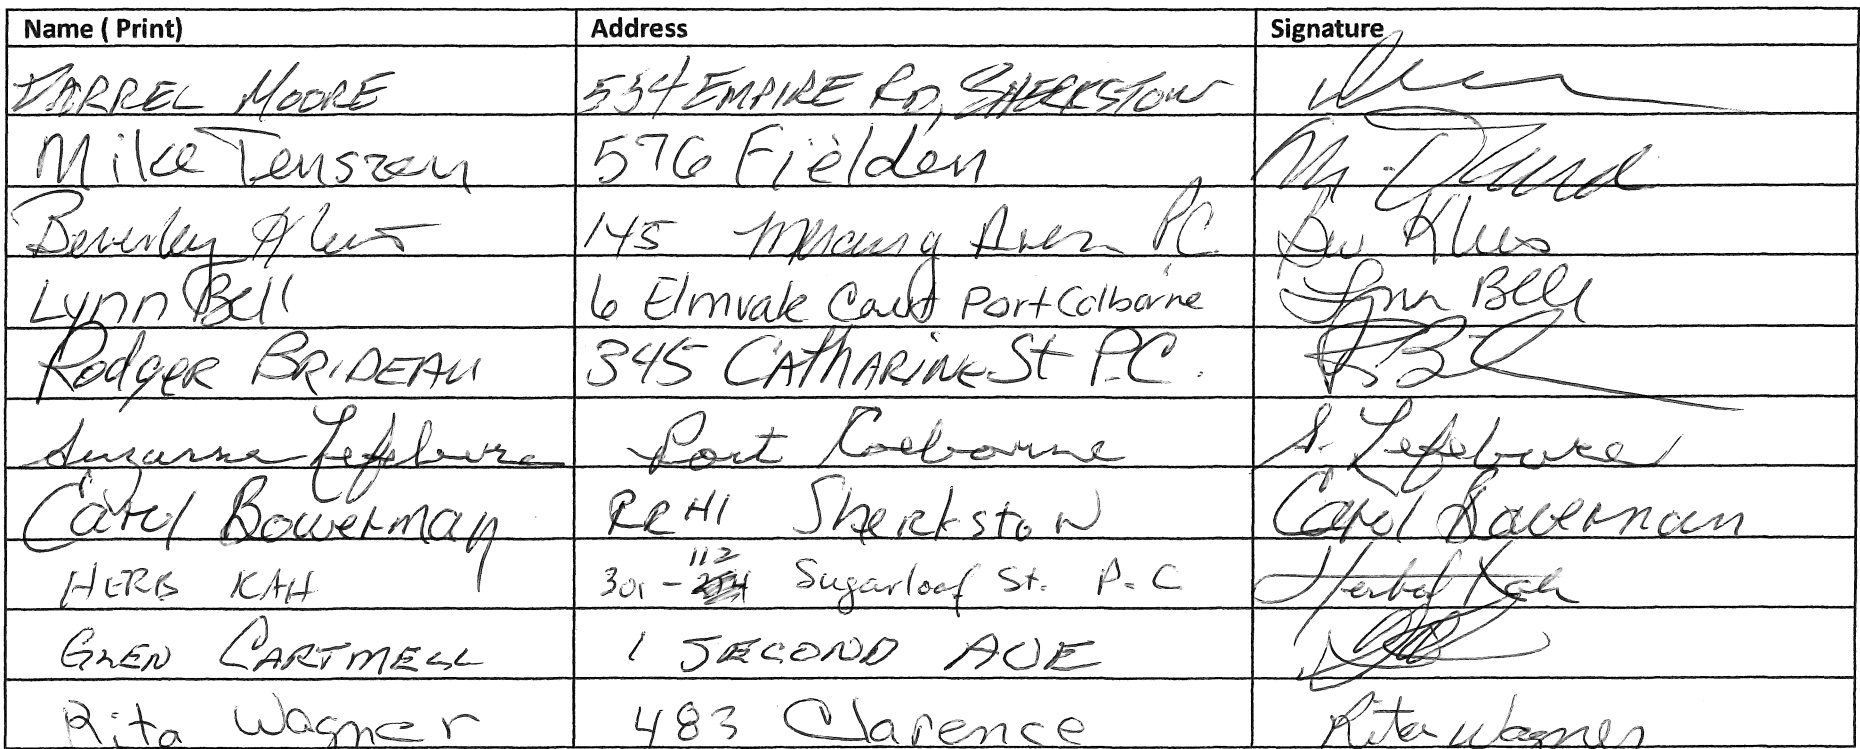 Name ( Print) Address Signature
DARREL MOORE 534 EMPIRE RD, SHERKSTON
Mike Tenszen 576 Fielden
Beverley 145 Mercury Aven P.C
Lynn Bell 6 Elmvale Court Port Colborne Lynn Bell
Rodger BRIDEAU 345 CATHARINE St P.C.
Suzanne Lefebvre Port Colborne S. Lefebvre
Carol Bowerman RR#1 Sherkston Carol Bowerman
HERB KAH 301-112 Sugarloaf St. P.C Herb Kah
GLEN CARTMELL 1 SECOND AVE
Rita Wagner 483 Clarence Rita Wagner